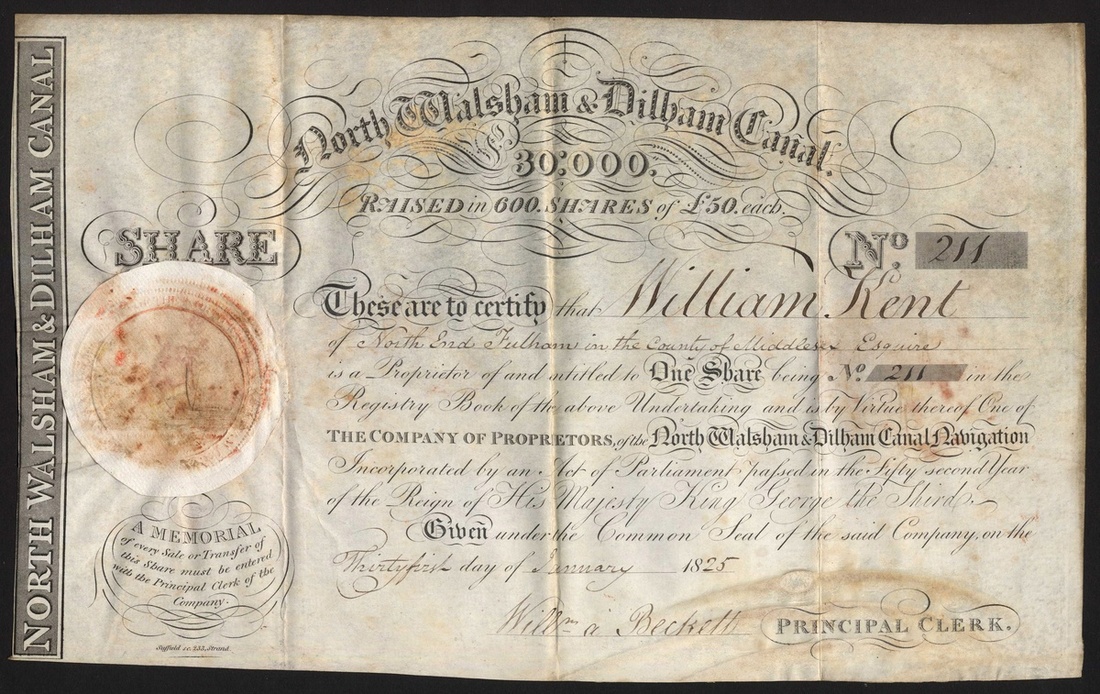 NORTH WALSHAM & DILHAM CANAL
North Walsham & Dilham Canal.
£
30:000.
RAISED in 600. SHARES of £50. each.
SHARE
No. 211
These are to certify that William Kent
of North End Fulham in the County of Middlesex Esquire
is a Proprietor of and intitled to One Share being No. 211 in the
Registry Book of the above Undertaking and is by Virtue thereof One of
THE COMPANY OF PROPRIETORS, of the North Walsham & Dilham Canal Navigation
Incorporated by an Act of Parliament passed in the Fifty second Year
of the Reign of His Majesty King George the Third.
Given under the Common Seal of the said Company, on the
Thirtyfirst day of January 1825
Willm a Beckett PRINCIPAL CLERK.
A MEMORIAL
of every Sale or Transfer of
this Share must be entered
with the Principal Clerk of the
Company.
Suffield sc. 233, Strand.